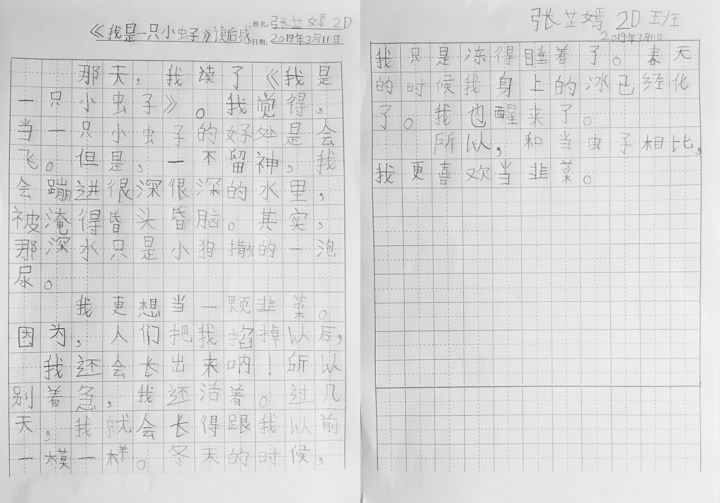 《我是一只小虫子》读后感 姓名：张芷嫣 2D
日期：2019年3月11日
那天，我读了《我是
一只小虫子》。我觉得，
当一只小虫子的好处是会
飞。但是，一不留神，我
会蹦进很深很深的水里，
被淹得昏头昏脑。其实，
那深水只是小狗撒的一泡
尿。
我更想当一颗韭菜。
因为，人们把我掐掉以后，
我还会长出来呐！所以
别着急，我还活着。过几
天，我就会长得跟我以前
一模一样。冬天的时候，
张芷嫣 2D班
2019年3月11日
我只是冻得睡着了。春天
的时候我身上的冰已经化
了。我也醒来了。
所以，和当虫子相比，
我更喜欢当韭菜。